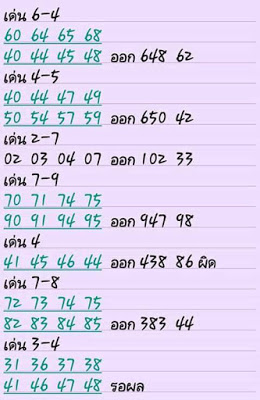 เด่น 6-4
60 64 65 68
40 44 45 48 ออก 648 62
เด่น 4-5
40 44 47 49
50 54 57 59 ออก 650 42
เด่น 2-7
02 03 04 07 ออก 102 33
เด่น 7-9
70 71 74 75
90 91 94 95 ออก 947 98
เด่น 4
41 45 46 44 ออก 438 86 ผิด
เด่น 7-8
72 73 74 75
82 83 84 85 ออก 383 44
เด่น 3-4
31 36 37 38
41 46 47 48 รอผล